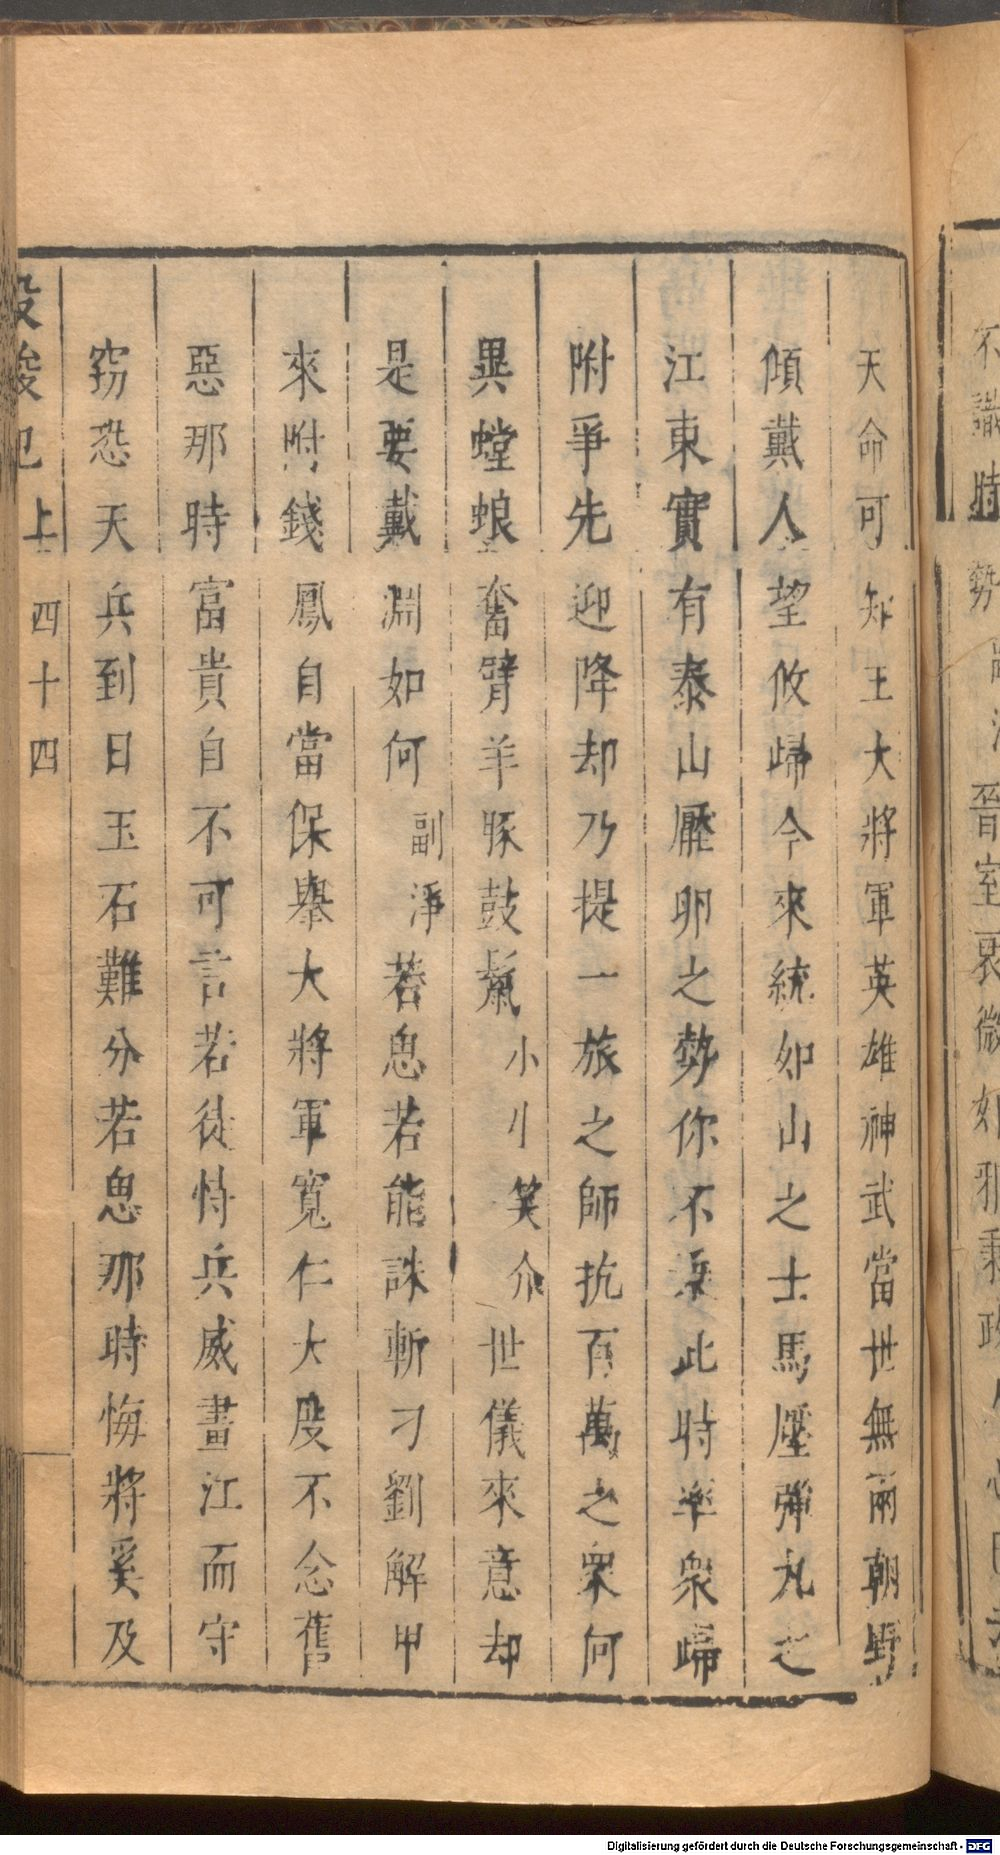 天命可知王大將軍英雄神武當世無兩朝野
傾戴人望攸歸今來統如山之士馬壓彈丸之
江東實有泰山壓卵之勢你不乘此時率衆歸
附爭先迎降却乃提一旅之師抗百萬之衆何
異螳蜋奮臂羊豚鼓鬣小刂笑介世儀來意却
是要戴淵如何副淨若思若能誅斬刁劉解甲
來附錢鳳自當保舉大將軍寬仁大度不念舊
惡那時富貴自不可言若徒恃兵威畫江而守
窃恐天兵到日玉石難分若思那時悔將奚及
上 四十四
不識時勢
晉室衰微
Digitalisierung gefördert durch die Deutsche Forschungsgemeinschaft - DFG